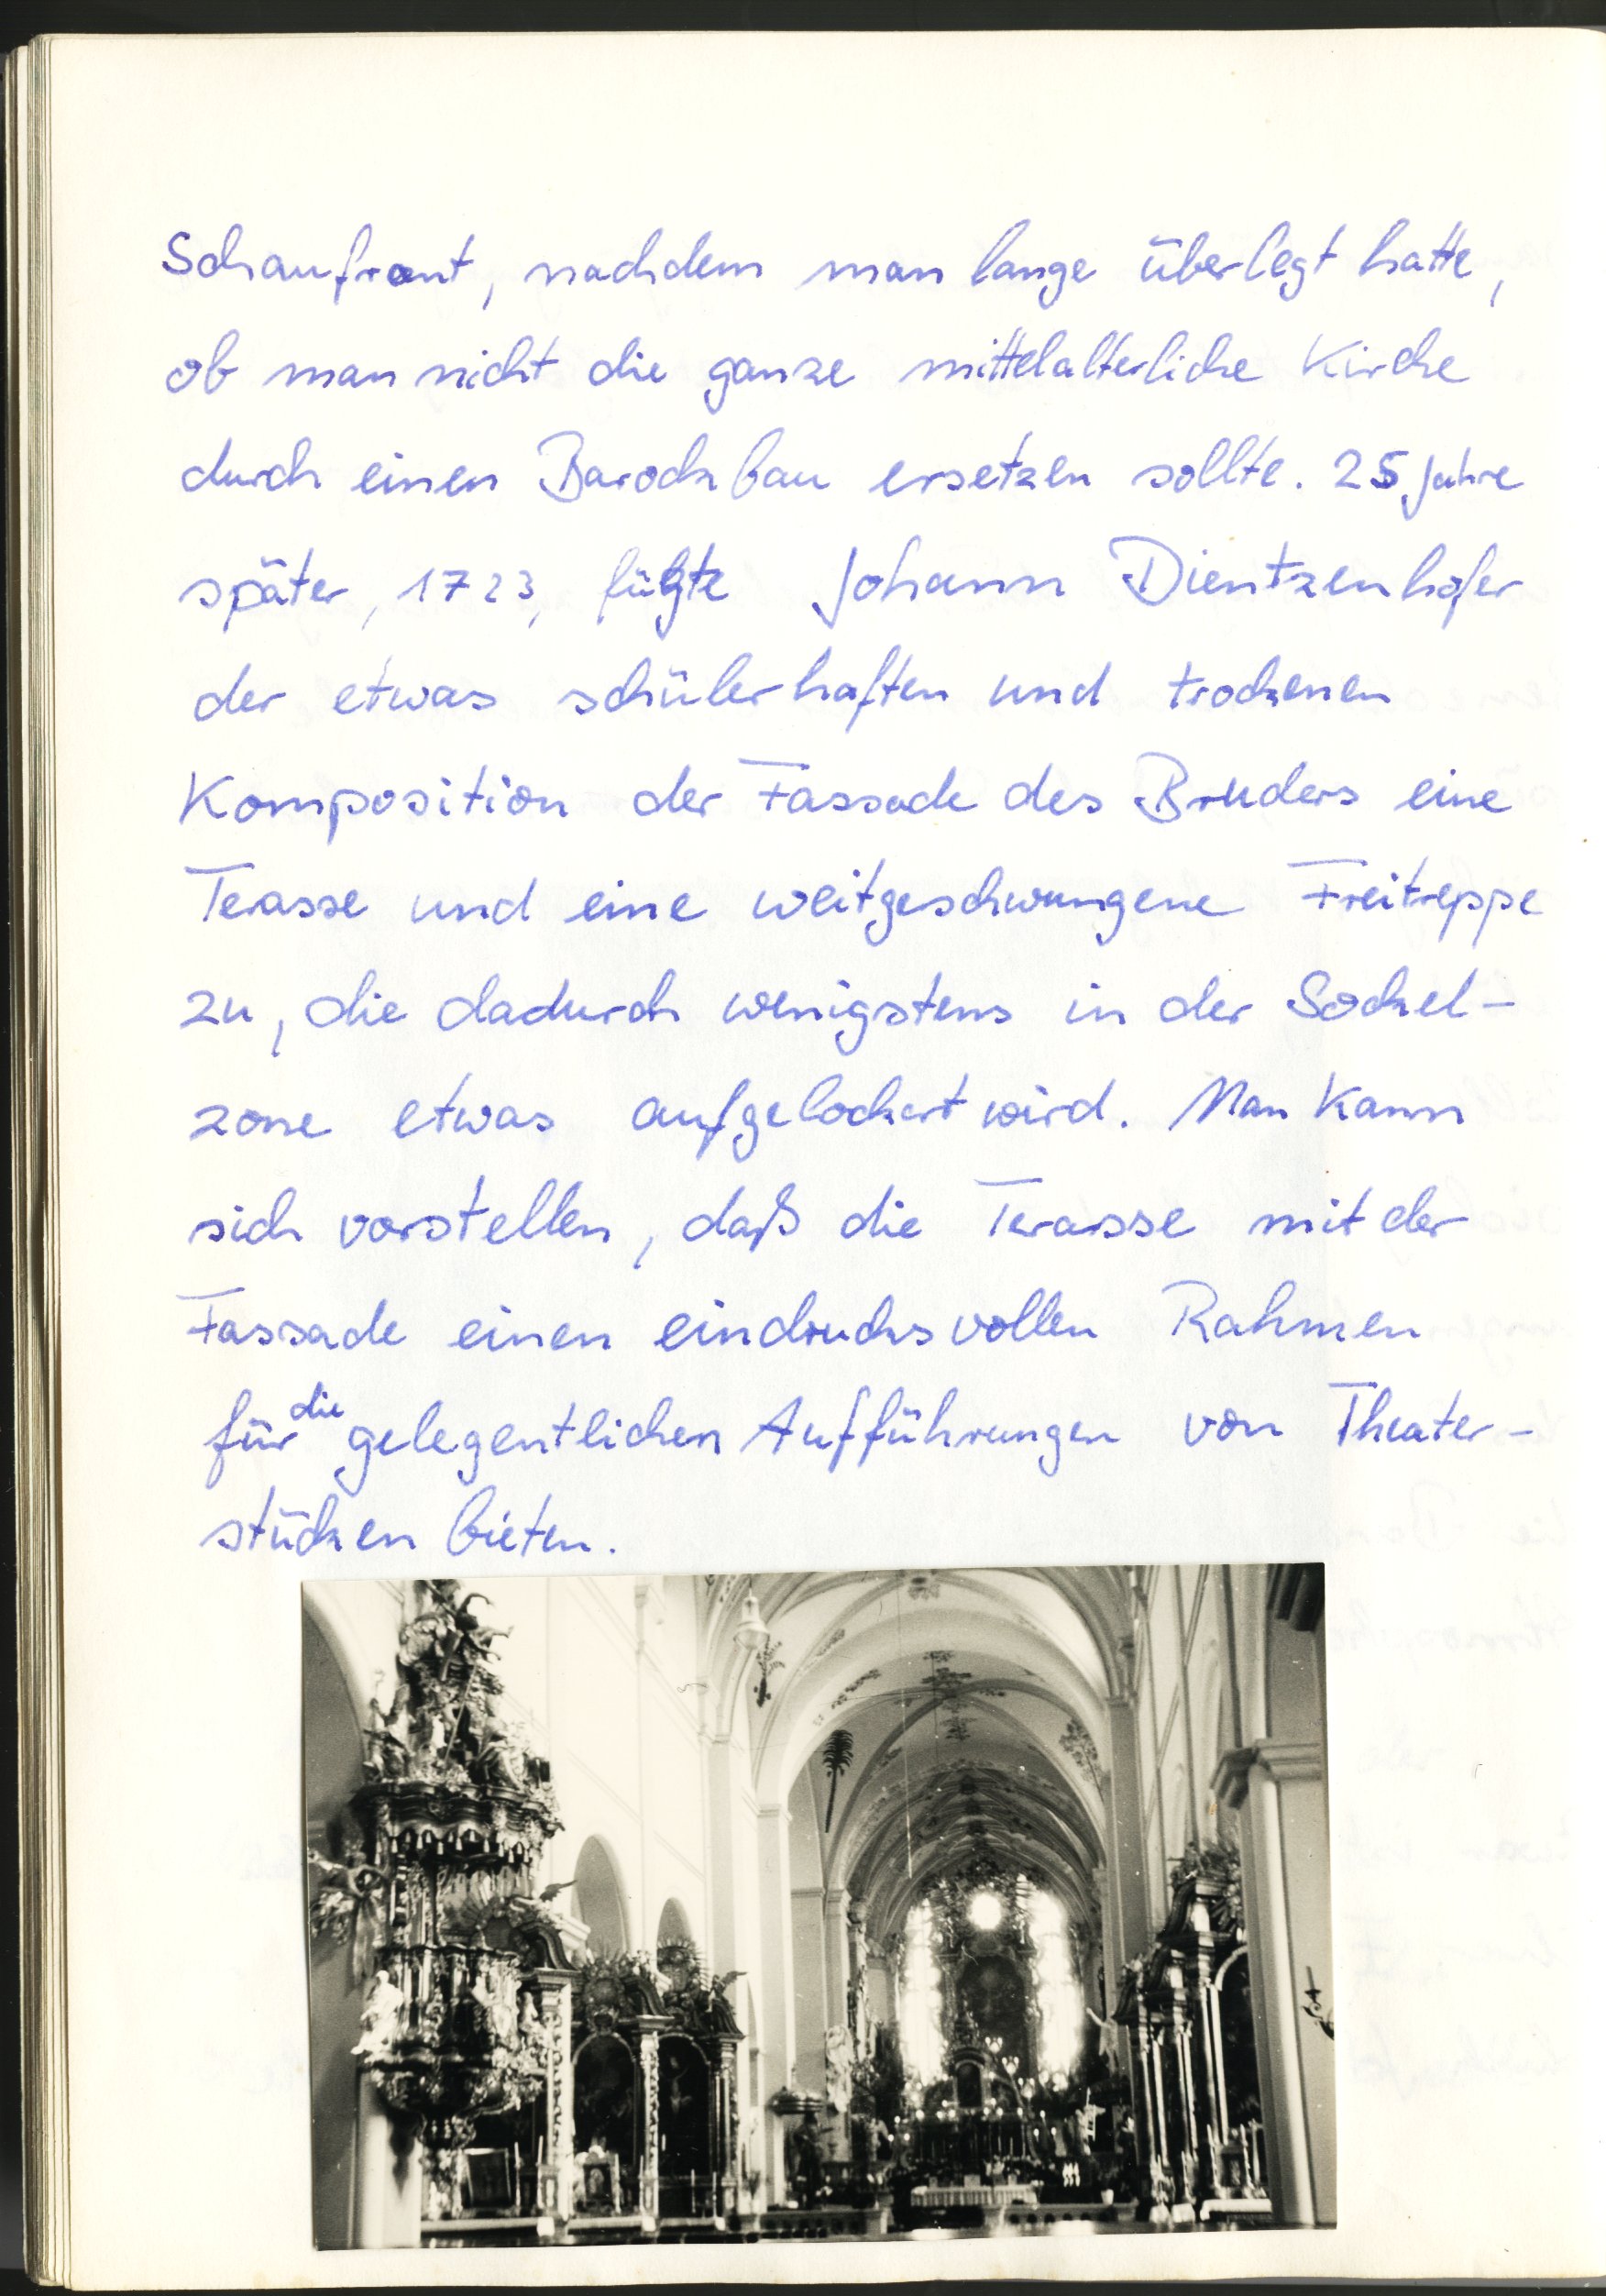 Schaufront, nachdem man lange überlegt hatte,
ob man nicht die ganze mittelalterliche Kirche
durch einen Barockbau ersetzen sollte. 25 Jahre
später, 1723, fügte Johann Dientzenhofer
der etwas schülerhaften und trockenen
Komposition der Fassade des Bruders eine
Terasse und eine weitgeschwungene Freitreppe
zu, die dadurch wenigstens in der Sockel-
zone etwas aufgelockert wird. Man kann
sich vorstellen, daß die Terasse mit der
Fassade einen eindrucksvollen Rahmen
für die gelegentlichen Aufführungen von Theater-
stücken bieten.